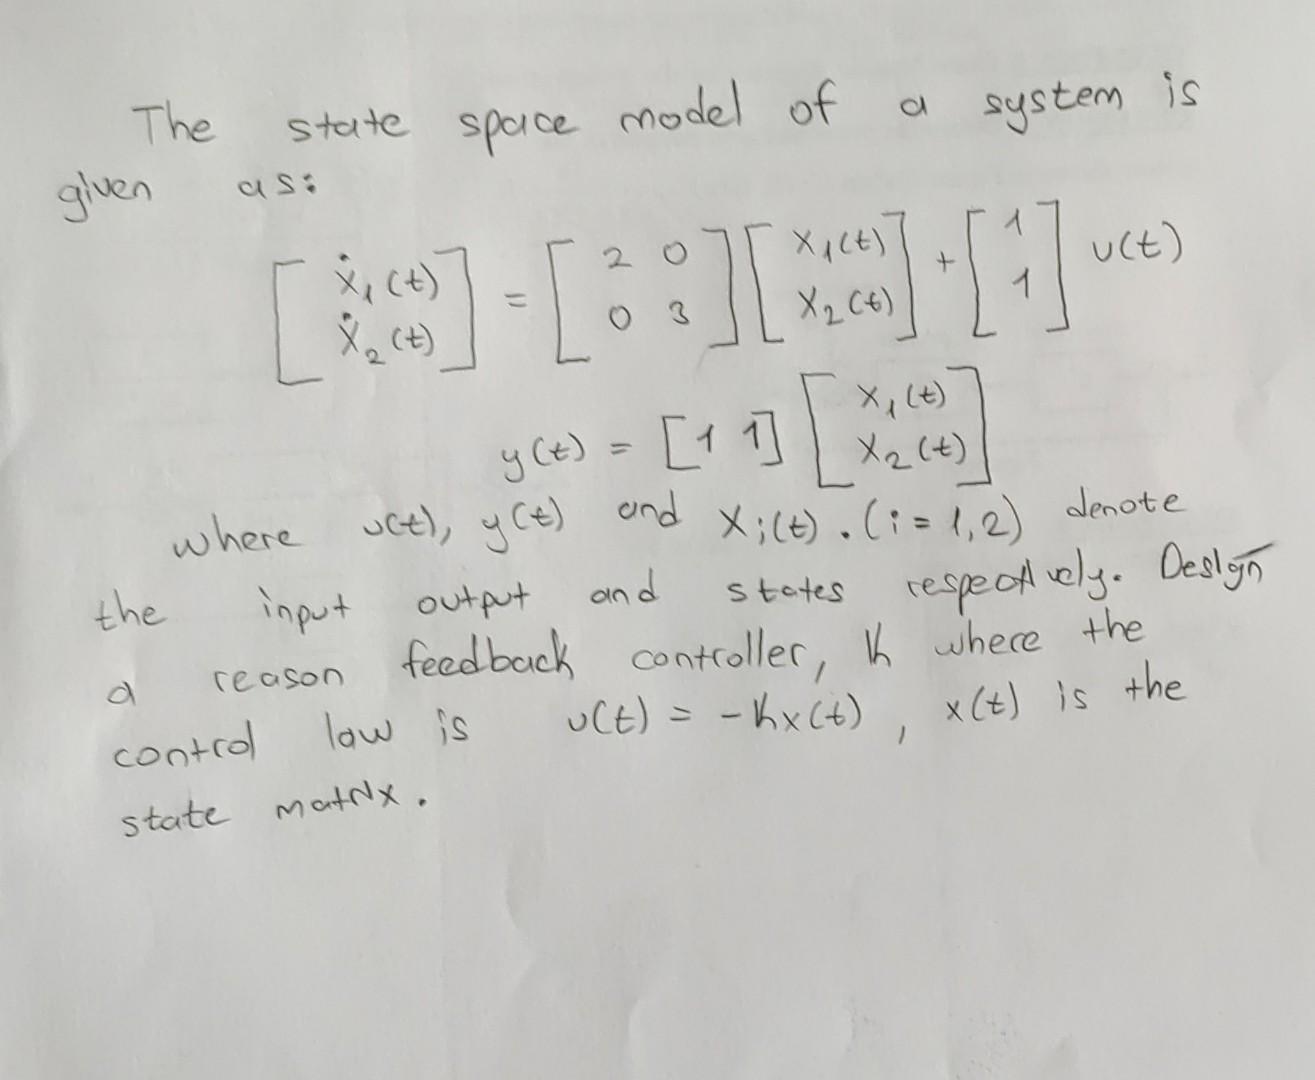 The state space model of a system is
given as:
[ẋ₁(t) ẋ₂(t)] = [2 0 0 3] [x₁(t) x₂(t)] + [1 1] u(t)
y(t) = [1 1] [x₁(t) x₂(t)]
where u(t), y(t) and xᵢ(t). (i = 1,2) denote
the input output and states respectively. Design
a reason feedback controller, K where the
control law is u(t) = -Kx(t), x(t) is the
state matrix.